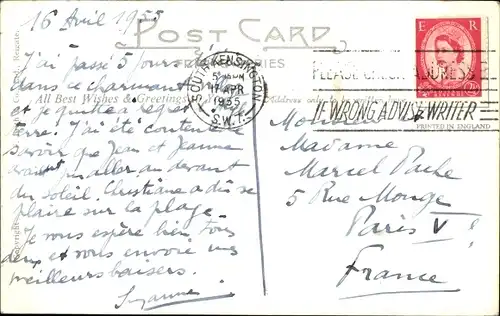 16 Avril 1955
J'ai passé 5 jours
dans ce charmant
et je quitte à regret
J'ai été contente
savoir que Jean et Jeanne
avaient pu aller au devant
du soleil. Christiane a dû se
plaire sur la plage.
Je vous espère bien tous
deux et vous envoie mes
meilleurs baisers.
Suzanne
POST CARD
All Best Wishes & Greetings
Address only
SOUTH KENSINGTON
5 PM
17 APR
1955
S.W.7.
PLEASE CHECK ADDRESS
IF WRONG ADVISE WRITER
E R
2½
PRINTED IN ENGLAND
Madame
Marcel Pache
5 Rue Monge
Paris V
France